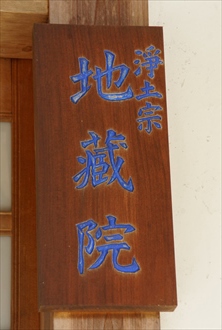 浄土宗
地藏院